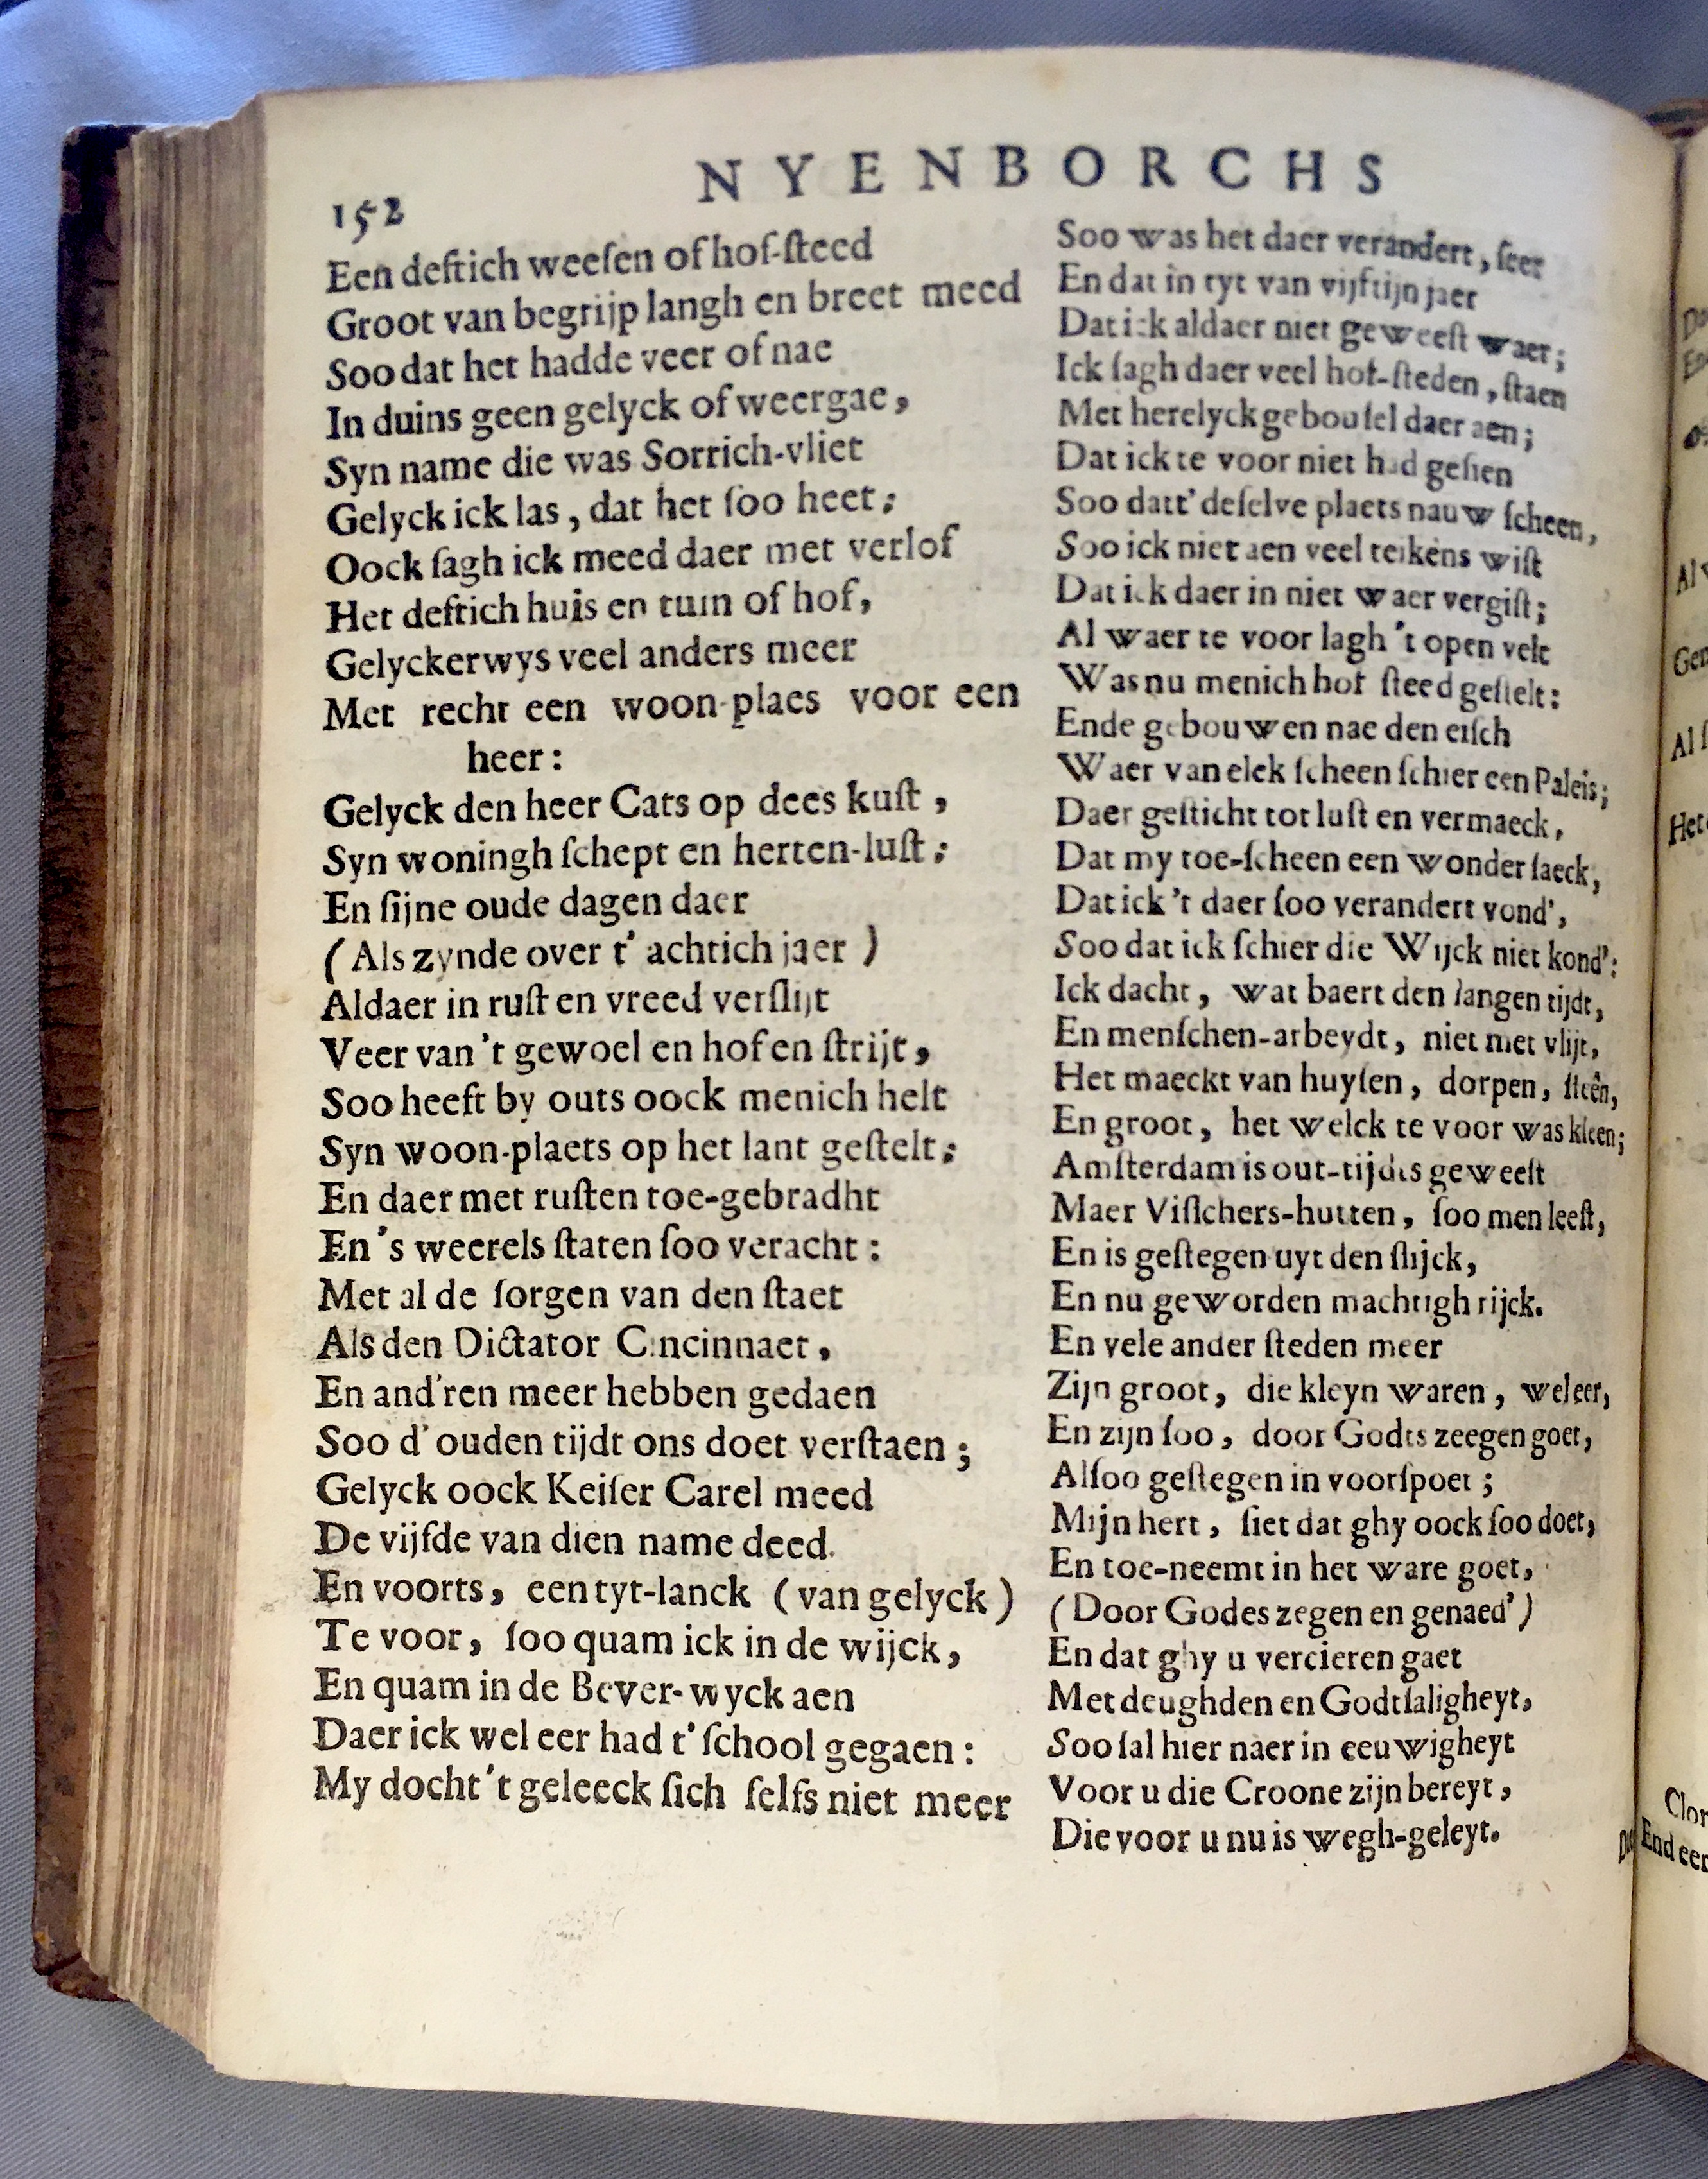 152
NYENBORCHS
Een deftich weeſen of hof-ſteed
Groot van begrijp langh en breet meed
Soo dat het hadde veer of nae
In duins geen gelyck of weergae,
Syn name die was Sorrich-vliet
Gelyck ick las, dat het ſoo heet;
Oock ſagh ick meed daer met verlof
Het deftich huis en tuin of hof,
Gelyckerwys veel anders meer
Met recht een woon-plaes voor een
heer:
Gelyck den heer Cats op dees kuſt,
Syn woningh ſchept en herten-luſt;
En ſijne oude dagen daer
(Als zynde over t' achtich jaer)
Aldaer in ruſt en vreed verſlijt
Veer van 't gewoel en hof en ſtrijt,
Soo heeft by outs oock menich helt
Syn woon-plaets op het lant geſtelt;
En daer met ruſten toe-gebradht
En 's weerels ſtaten ſoo veracht:
Met al de ſorgen van den ſtaet
Als den Dictator Cincinnaet,
En and'ren meer hebben gedaen
Soo d' ouden tijdt ons doet verſtaen;
Gelyck oock Keiſer Carel meed
De vijfde van dien name deed.
En voorts, een tyt-lanck (van gelyck)
Te voor, ſoo quam ick in de wijck,
En quam in de Bever-wyck aen
Daer ick wel eer had t' ſchool gegaen:
My docht 't geleeck ſich ſelfs niet meer
Soo was het daer verandert, ſeer
En dat in tyt van vijftijn jaer
Dat ick aldaer niet geweeſt waer;
Ick ſagh daer veel hof-ſteden, ſtaen
Met herelyck gebouſel daer aen;
Dat ick te voor niet had geſien
Soo datt' deſelve plaets nauw ſcheen,
Soo ick niet aen veel teikens wiſt
Dat ick daer in niet waer vergiſt;
Al waer te voor lagh 't open velt
Was nu menich hof ſteed geſtelt:
Ende gebouwen nae den eiſch
Waer van elck ſcheen ſchier een Paleis;
Daer geſticht tot luſt en vermaeck,
Dat my toe-ſcheen een wonder ſaeck,
Dat ick 't daer ſoo verandert vond',
Soo dat ick ſchier die Wijck niet kond':
Ick dacht, wat baert den langen tijdt,
En menſchen-arbeydt, niet met vlijt,
Het maeckt van huyſen, dorpen, ſteên,
En groot, het welck te voor was kleen;
Amſterdam is out-tijdts geweeſt
Maer Viſſchers-hutten, ſoo men leeſt,
En is geſtegen uyt den ſlijck,
En nu geworden machtigh rijck.
En vele ander ſteden meer
Zijn groot, die kleyn waren, wel eer,
En zijn ſoo, door Godts zeegen goet,
Alſoo geſtegen in voorſpoet;
Mijn hert, ſiet dat ghy oock ſoo doet,
En toe-neemt in het ware goet,
(Door Godes zegen en genaed')
En dat ghy u vercieren gaet
Met deughden en Godtſaligheyt,
Soo ſal hier naer in eeuwigheyt
Voor u die Croone zijn bereyt,
Die voor u nu is wegh-geleyt.
Al
Het
End eer